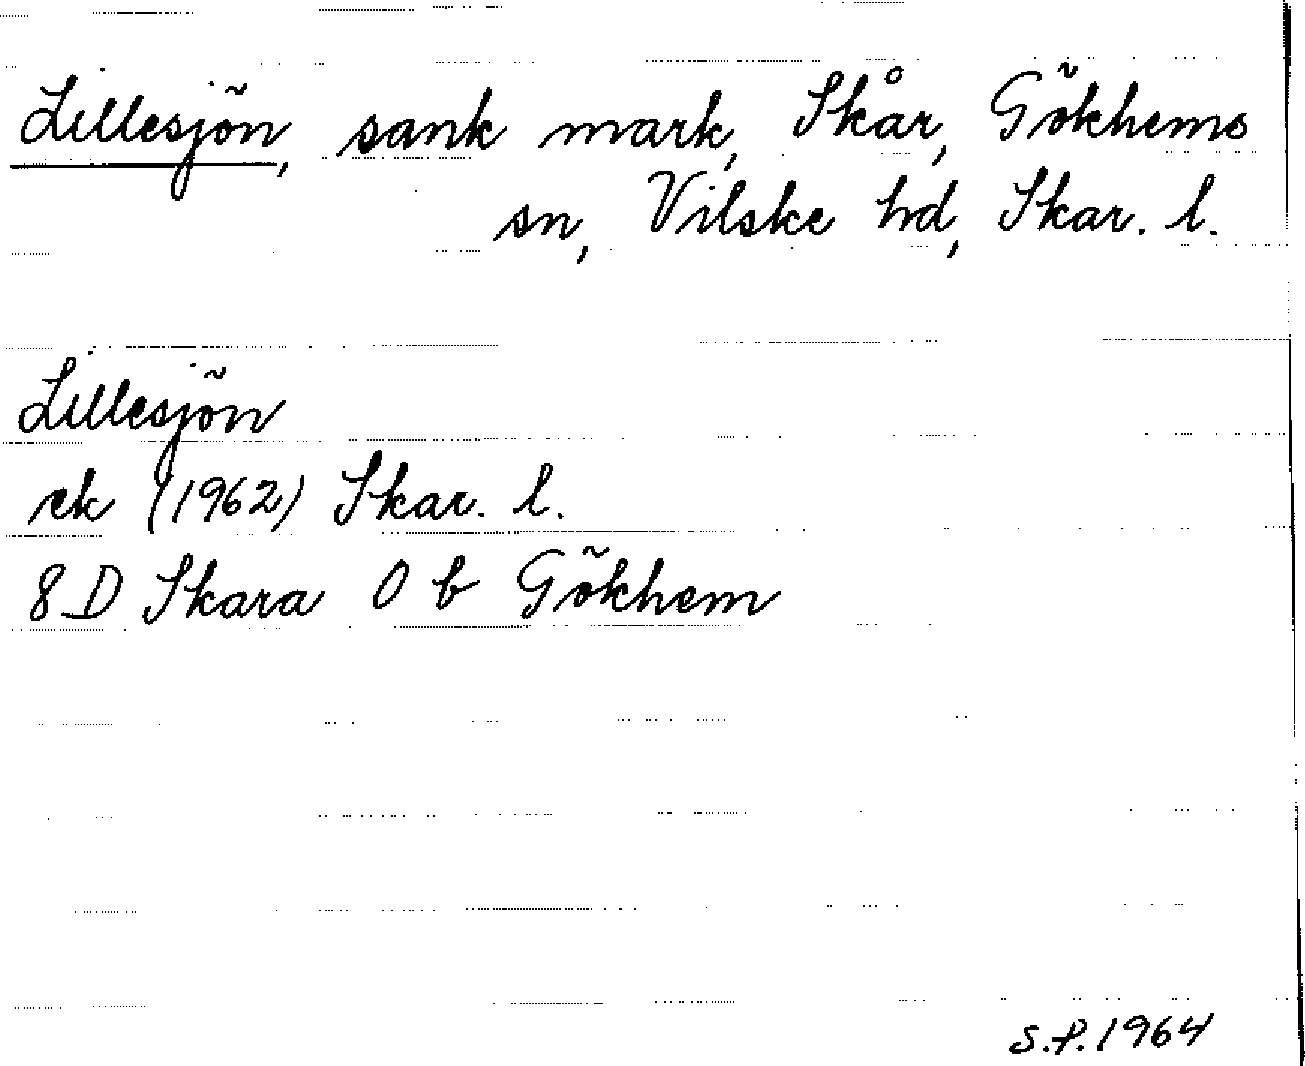 Lillesjön, sank mark, Skår, Gökhems
sn, Vilske hd, Skar. l.
Lillesjön
ek (1962) Skar. l.
8 D Skara O b Gökhem
S.P. 1964